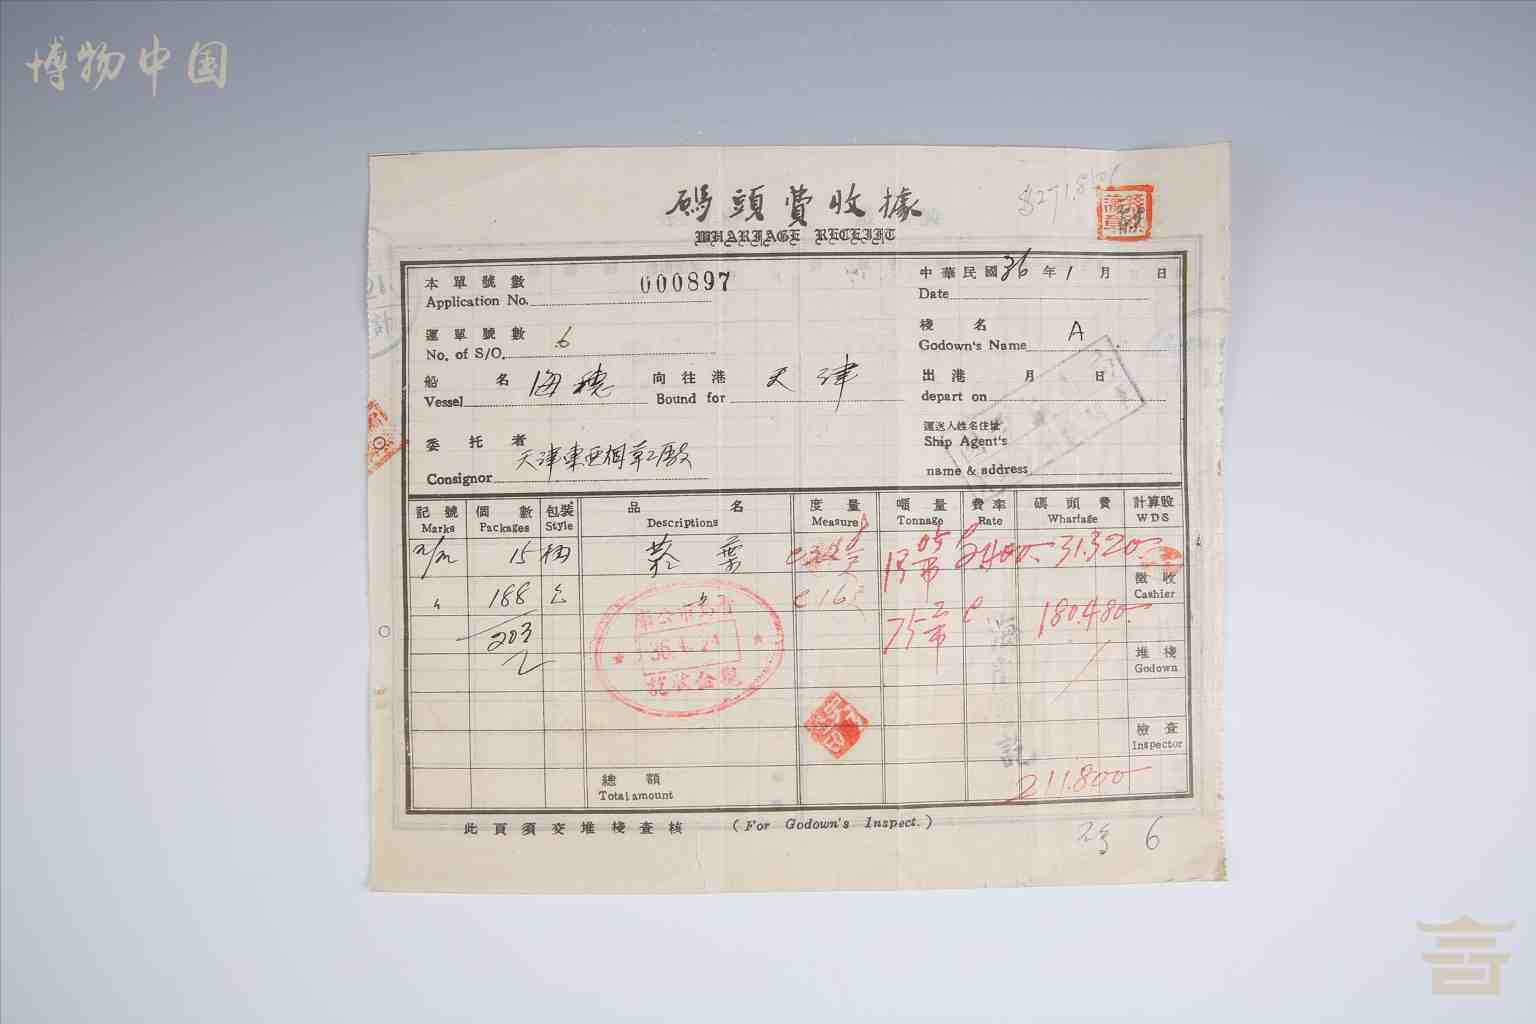 博物中国
碼頭費收據
WHARFAGE RECEIPT
本單號數 000897
Application No.
中華民國36年1月 日
Date
運單號數 6
No. of S/O.
棧名 A
Godown's Name
船名 海穗
Vessel
向往港 天津
Bound for
出港 月 日
depart on
委托者 天津東亞烟草工廠
Consignor
運送人姓名住址
Ship Agent's
name & address
記號 個數 包裝 品名 度量 噸量 費率 碼頭費 計算股
Marks Packages Style Descriptions Measure Tonnage Rate Wharfage WDS
N/M 15 葉 2400 31.320
徵收
Cashier
188 16 75 180.480
203
堆棧
Godown
檢查
Inspector
總額
Total amount
211.800
此頁須交堆棧查核 (For Godown's Inspect.)
6